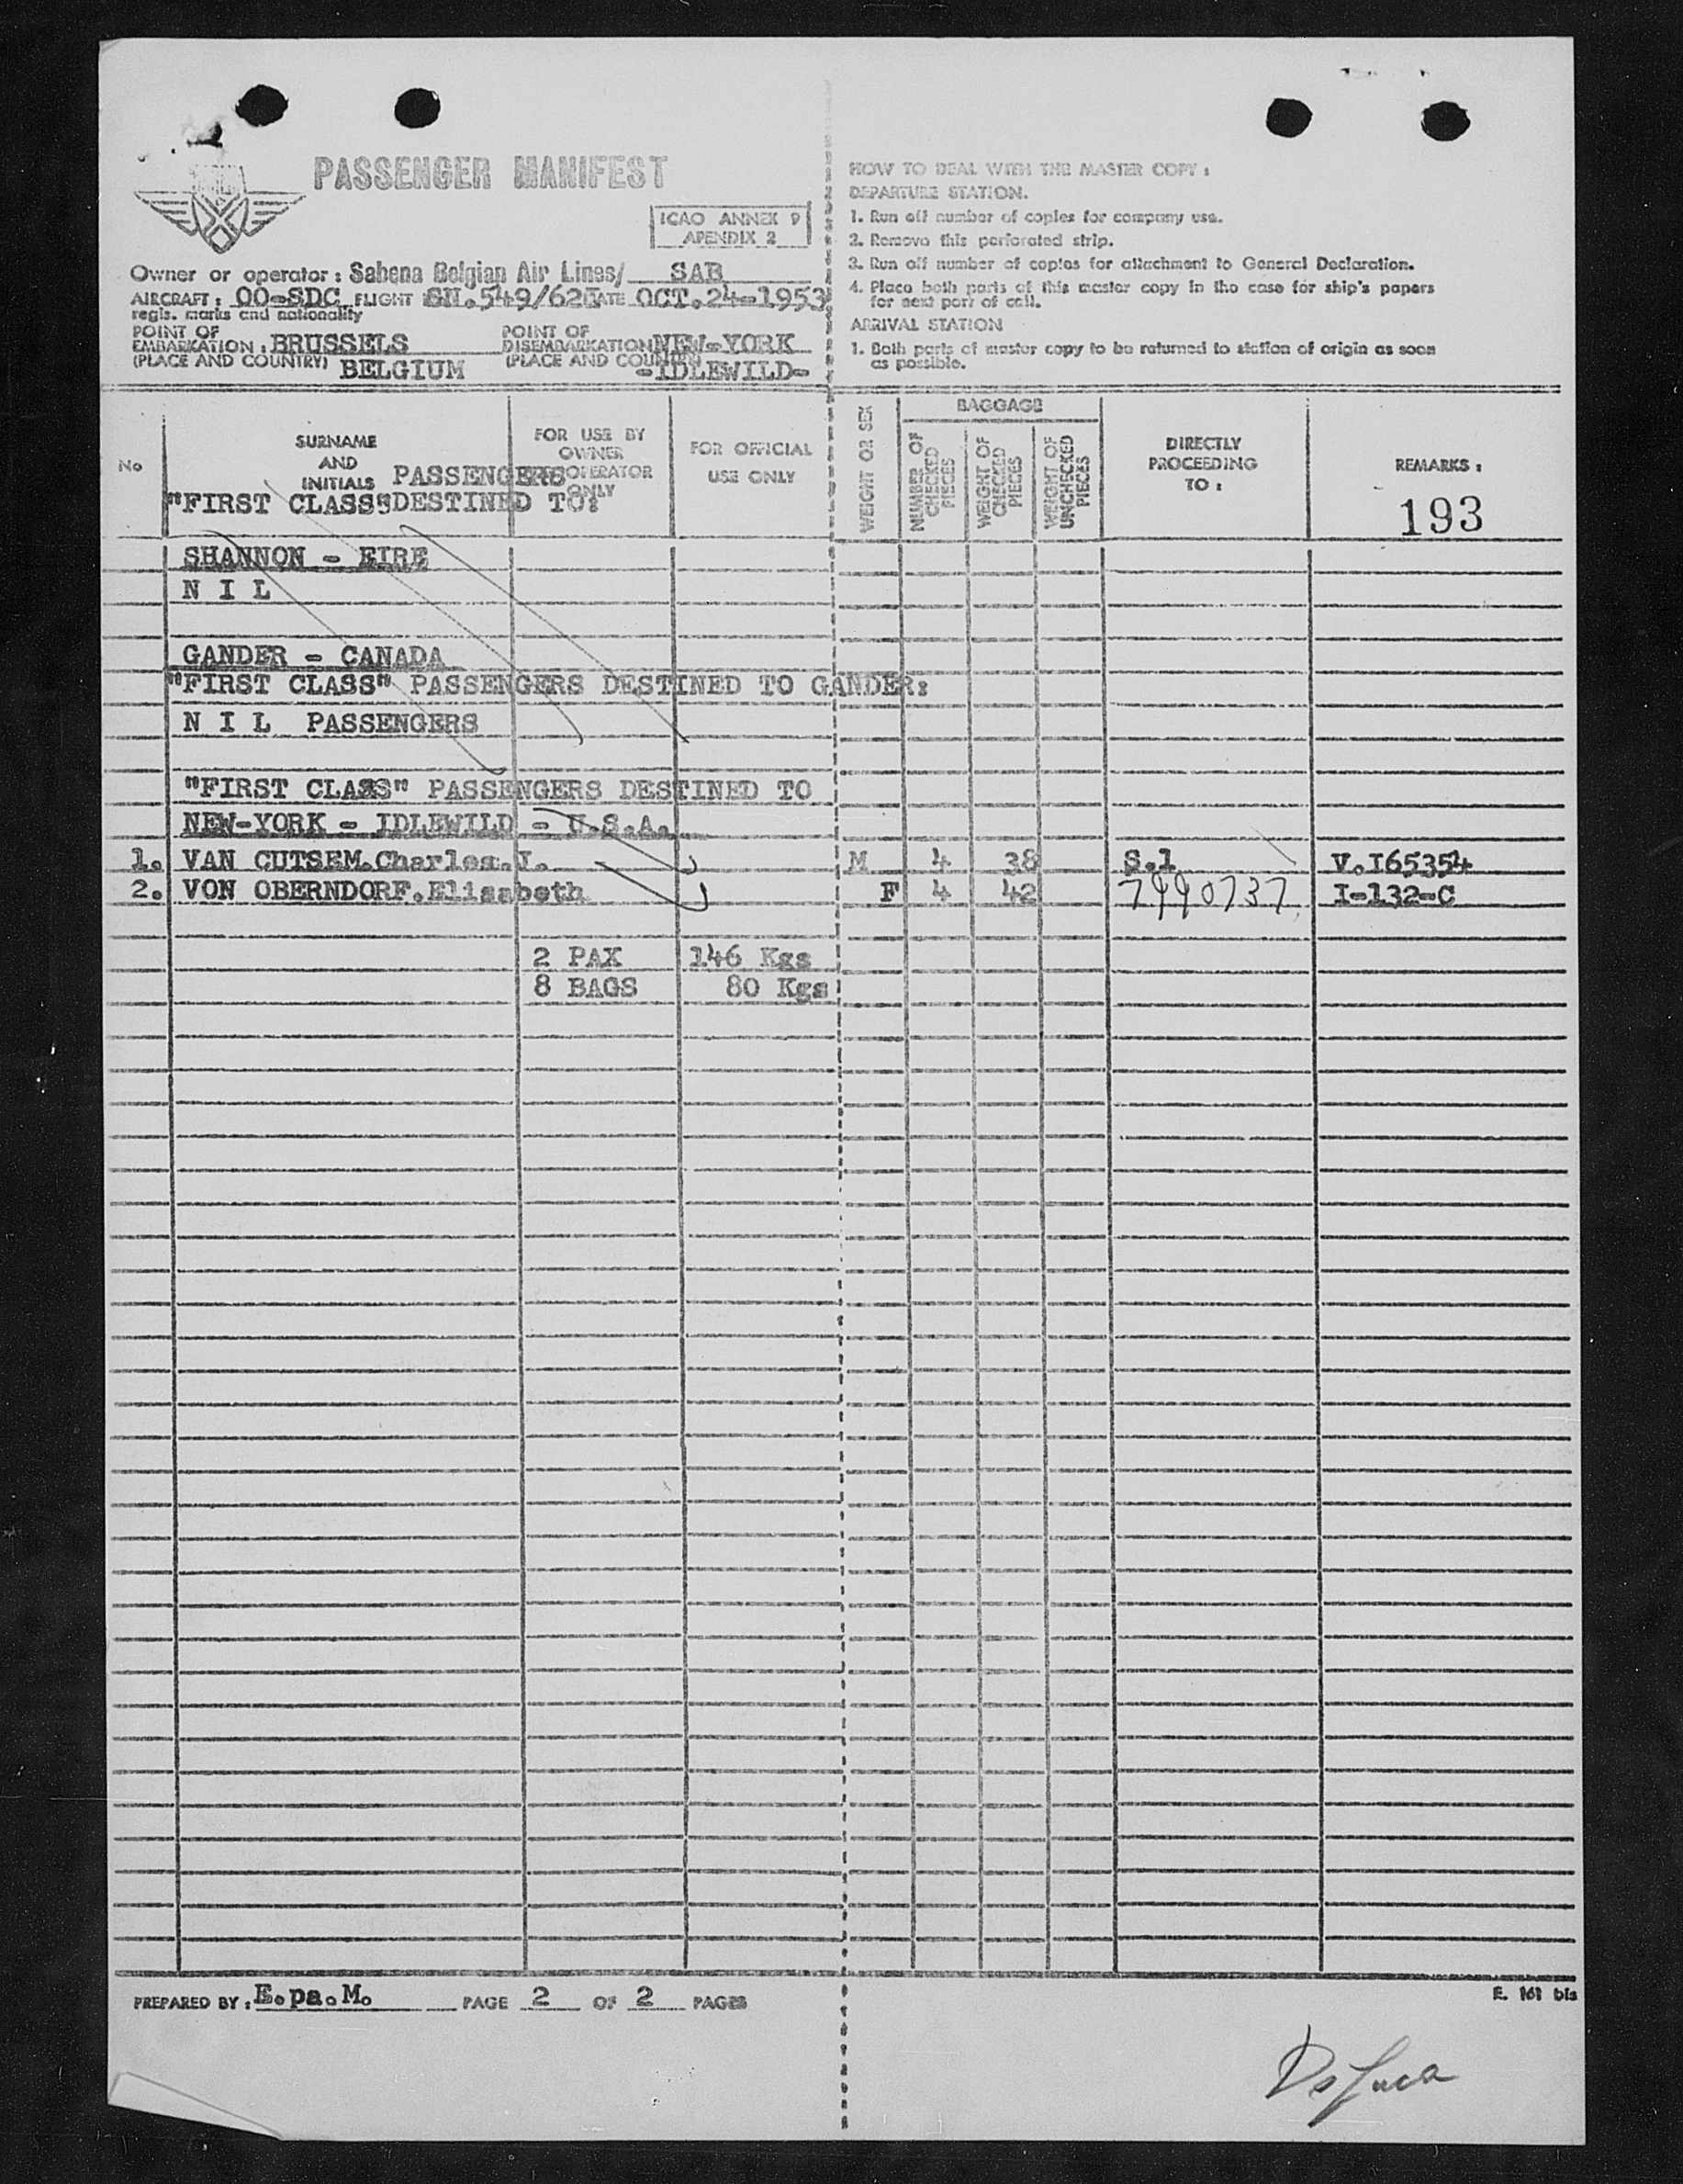 PASSENGER MANIFEST
ICAO ANNEX 9
APENDIX 2
Owner or operator : Sabena Belgian Air Lines/ SAB
AIRCRAFT : OO-SDC FLIGHT SN.549/62 DATE OCT.24-1953
regis. marks and nationality
POINT OF EMBARKATION : BRUSSELS
(PLACE AND COUNTRY) BELGIUM
POINT OF DISEMBARKATION NEW-YORK
(PLACE AND COUNTRY) -IDLEWILD-
HOW TO DEAL WITH THE MASTER COPY :
DEPARTURE STATION.
1. Run off number of copies for company use.
2. Remove this perforated strip.
3. Run off number of copies for attachment to General Declaration.
4. Place both parts of this master copy in the case for ship's papers
for next port of call.
ARRIVAL STATION
1. Both parts of master copy to be returned to station of origin as soon
as possible.
No
SURNAME
AND
INITIALS
FOR USE BY
OWNER
OR OPERATOR
ONLY
FOR OFFICIAL
USE ONLY
WEIGHT OR SEX
BAGGAGE
NUMBER OF CHECKED PIECES
WEIGHT OF CHECKED PIECES
WEIGHT OF UNCHECKED PIECES
DIRECTLY
PROCEEDING
TO :
REMARKS :
193
PASSENGERS
"FIRST CLASS" DESTINED TO:
SHANNON - EIRE
N I L
GANDER - CANADA
"FIRST CLASS" PASSENGERS DESTINED TO GANDER:
N I L PASSENGERS
"FIRST CLASS" PASSENGERS DESTINED TO
NEW-YORK - IDLEWILD - U.S.A.
1. VAN CUTSEM.Charles.J. M 4 38 S.1 V.165354
2. VON OBERNDORF.Elisabeth F 4 42 7990737 I-132-C
2 PAX 146 Kgs
8 BAGS 80 Kgs
PREPARED BY : E.pa.M. PAGE 2 OF 2 PAGES
E. 161 bis
De Luca